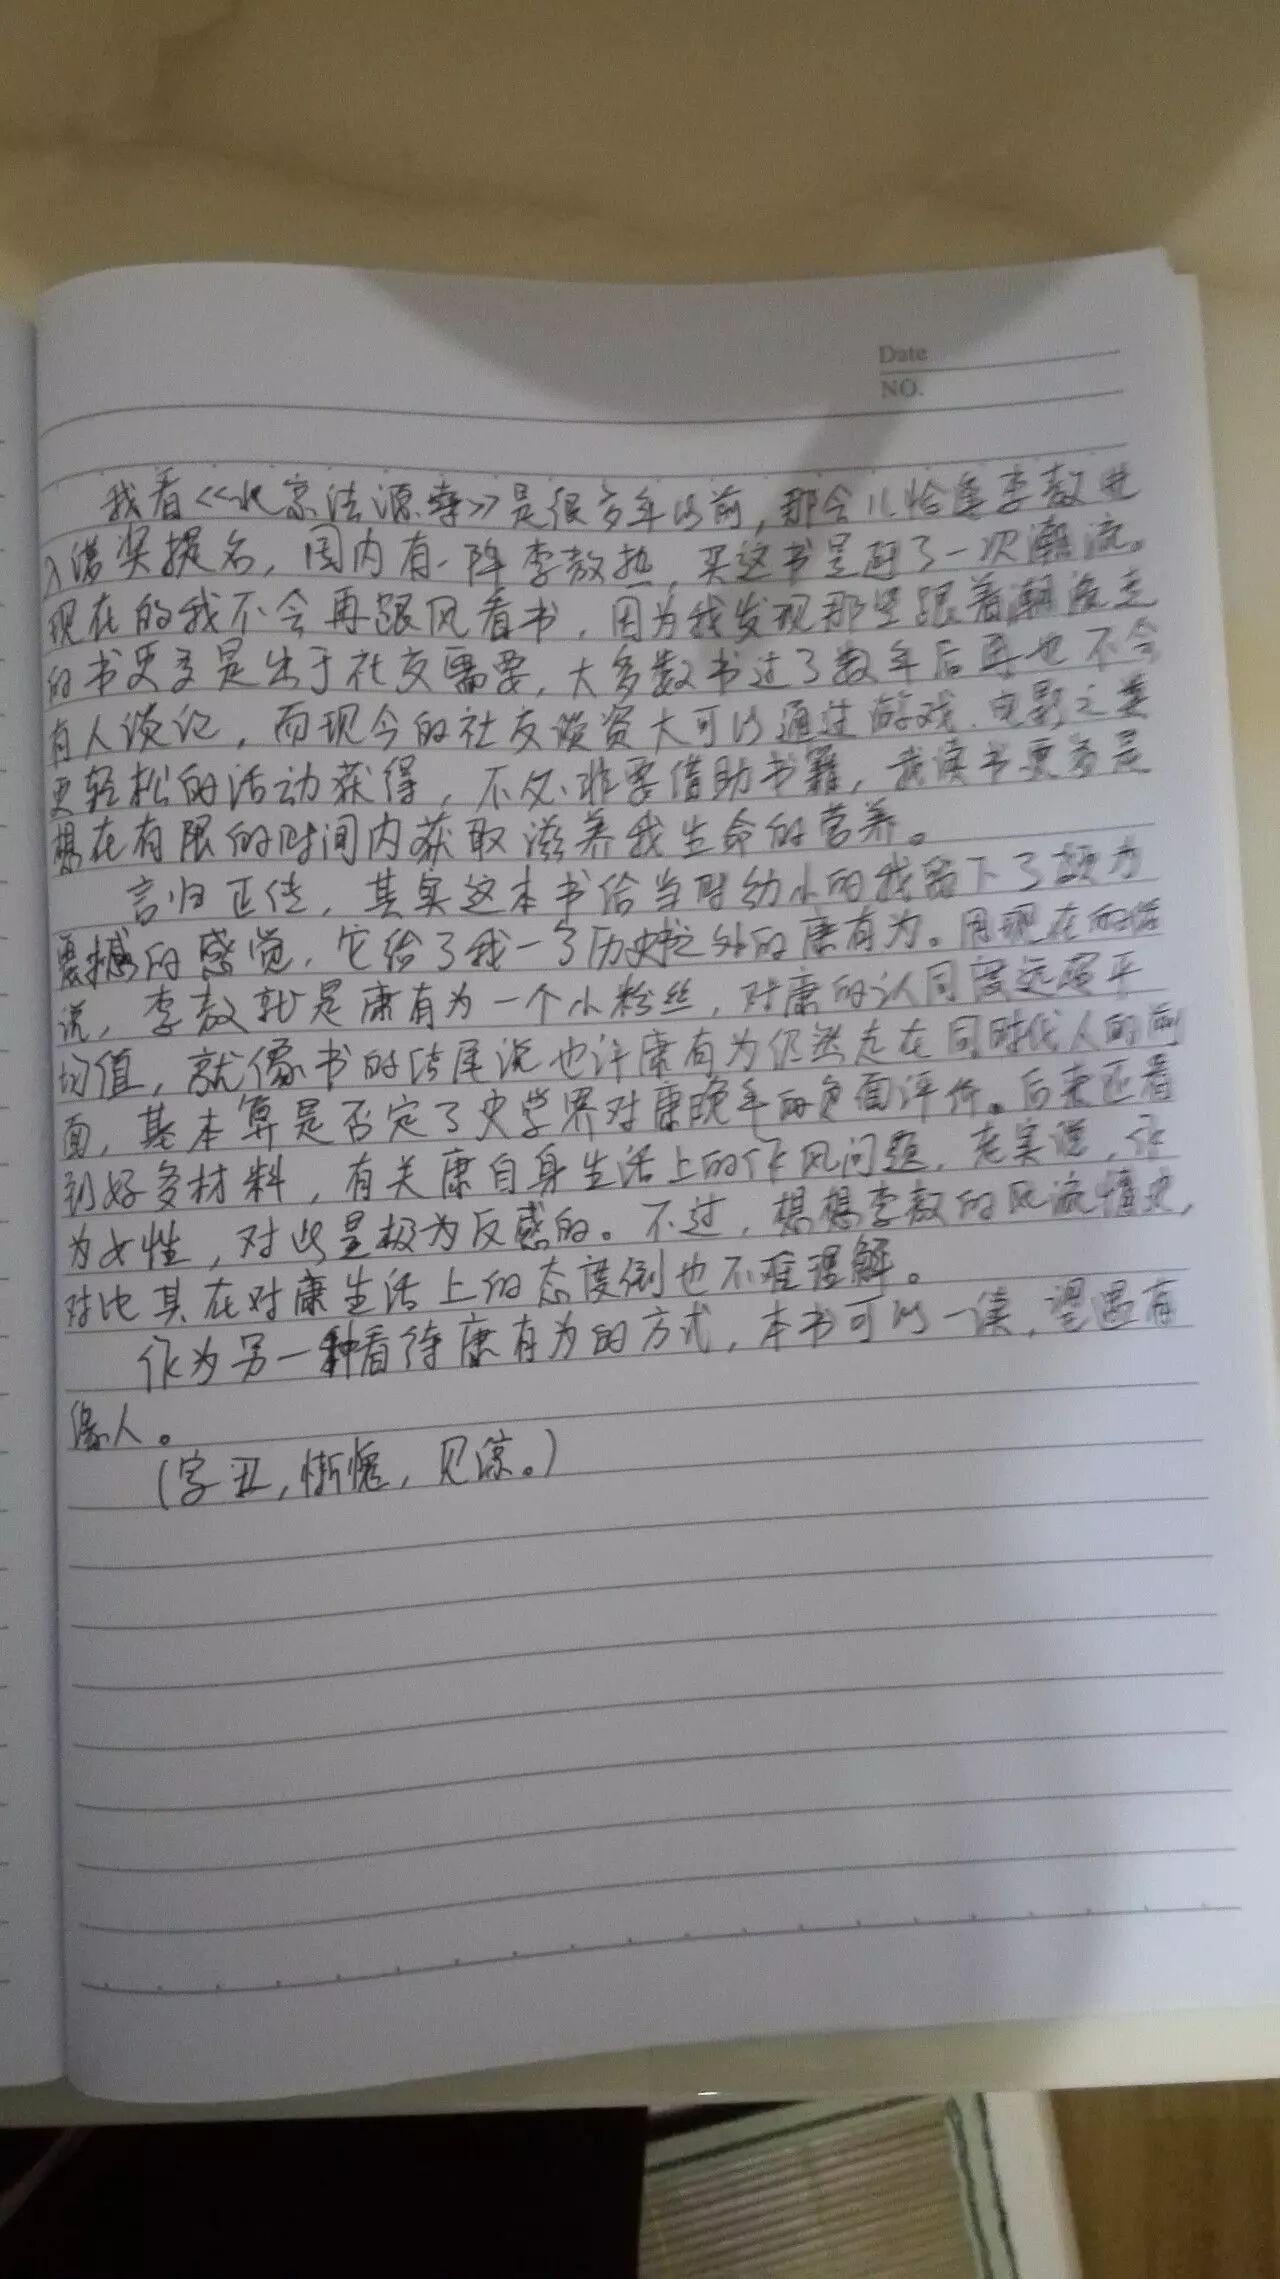 Date
NO.
我看《北京法源寺》是很多年以前,那会儿恰逢李敖进
入诺奖提名,国内有一阵李敖热,买这书是赶了一次潮流。
现在的我不会再跟风看书,因为我发现那些跟着潮流走
的书更多是出于社交需要,大多数书过了数年后再也不会
有人谈论,而现今的社交谈资大可以通过游戏、电影之类
更轻松的活动获得,不必非要借助书籍,我读书更多是
想在有限的时间内获取滋养我生命的营养。
言归正传,其实这本书给当时幼小的我留下了颇为
震撼的感觉,它给了我一个历史书之外的康有为。用现在的话
说,李敖就是康有为一个小粉丝,对康的认同度远超平
均值,就像书的结尾说也许康有为仍然走在同时代人的前
面,基本算是否定了史学界对康晚年的负面评价。后来还看
到好多材料,有关康自身生活上的作风问题,老实说,作
为女性,对此是极为反感的。不过,想想李敖的风流情史,
对比其在对康生活上的态度倒也不难理解。
作为另一种看待康有为的方式,本书可以一读,望遇有
缘人。
(字丑,惭愧,见谅。)